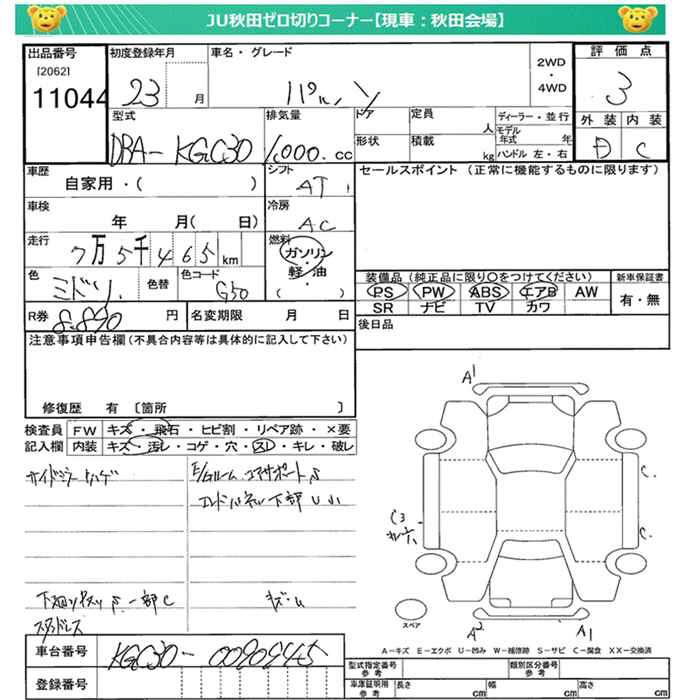 JU秋田ゼロ切りコーナー【現車：秋田会場】
出品番号 初度登録年月 車名・グレード 2WD ・ 4WD 評価点
[2062]
11044 23 月 パッソ 3
型式 排気量 ドア 定員 人 ディーラー・並行 外装 内装
DBA-KGC30 1,000.cc 形状 積載 kg モデル年式 年 ハンドル 左・右 D C
車歴 シフト セールスポイント（正常に機能するものに限ります）
自家用・( ) AT
車検 冷房
年 月( 日) AC
走行 燃料
7万5千465km ガソリン・軽油・( )
装備品（純正品に限り○をつけてください） 新車保証書
色 ミドリ 色替 色コード G50
PS PW ABS エアB AW 有・無
SR ナビ TV カワ
R券 8,890円 名変期限 月 日 後日品
注意事項申告欄（不具合内容等は具体的に記入して下さい）
修復歴 有 〔箇所 〕
検査員 FW キズ・飛石・ヒビ割・リペア跡・×要
記入欄 内装 キズ・汚レ・コゲ・穴・スレ・キレ・破レ
サイドミラーハゲ E/Gルーム コアサポートS
下部US
下廻りサビS 一部C キズ・U
スタッドレス
A1
C
C3
C
スペア A2 A1
A－キズ E－エクボ U－凹み W－補修跡 S－サビ C－腐食 XX－交換済
車台番号 KGC30-0090945
登録番号
型式指定番号 参考 類別区分番号 参考
車庫証明用 参考 長さ cm 幅 cm 高さ cm